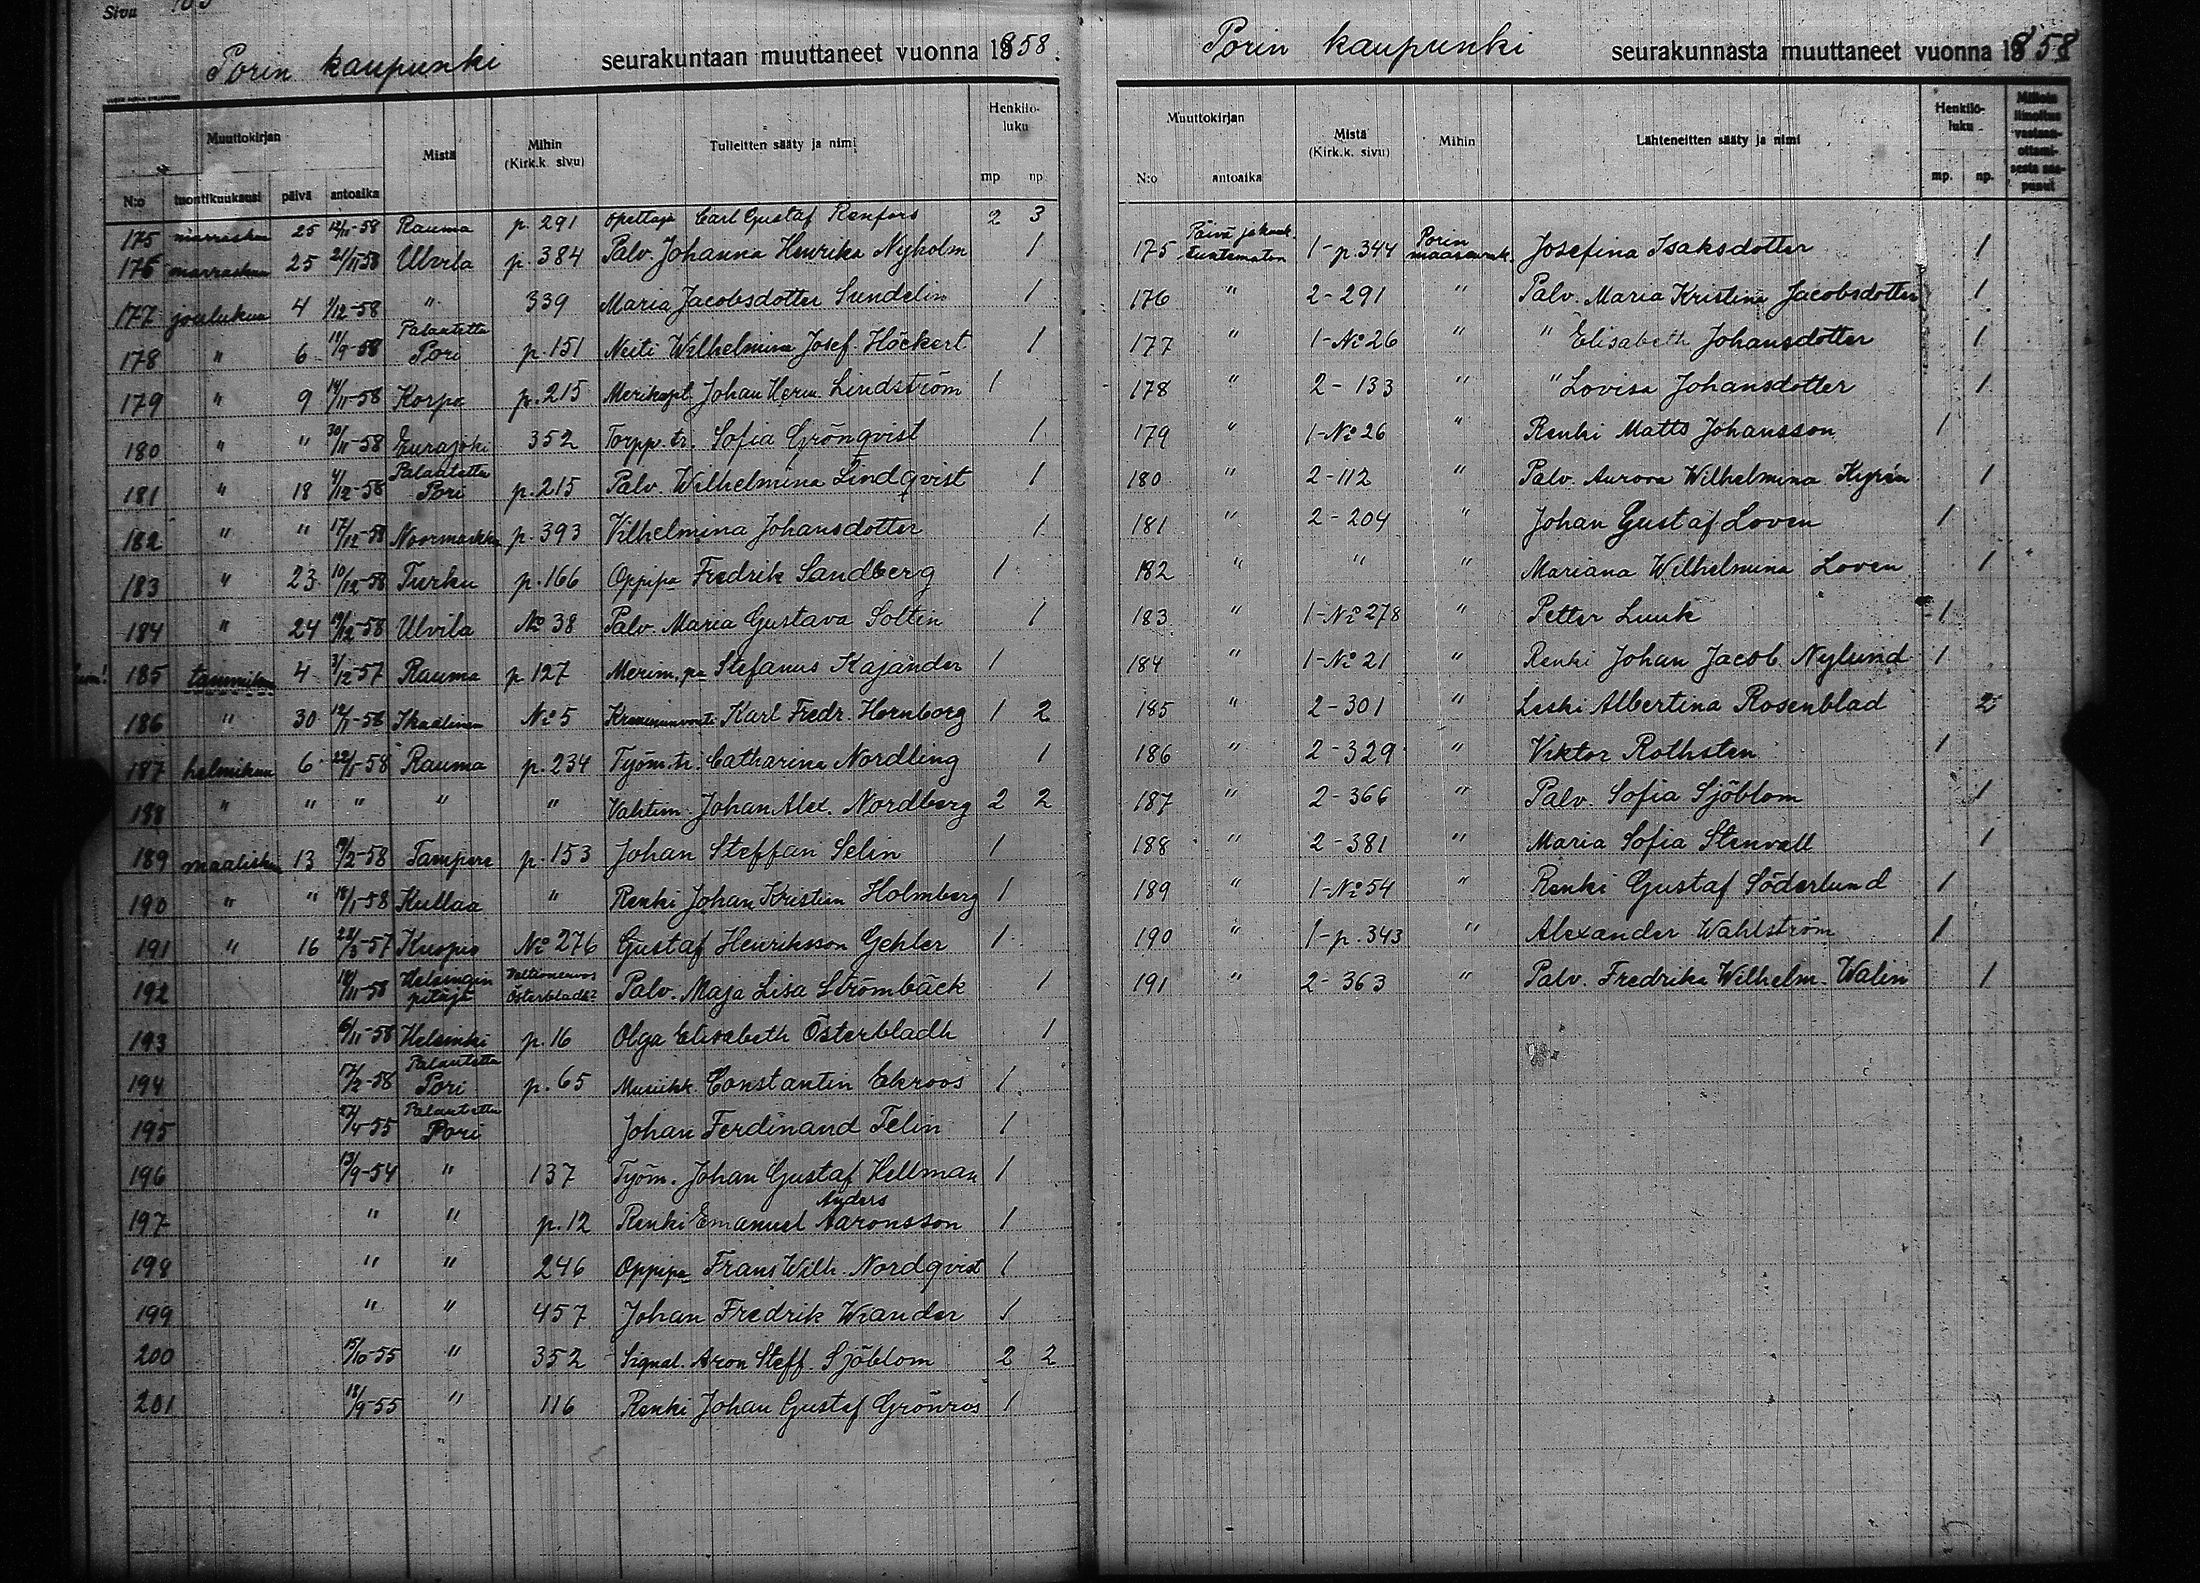 Sivu
Porin kaupunki seurakuntaan muuttaneet vuonna 1858.
Muuttokirjan Mistä Mihin (Kirk.k. sivu) Tulleitten sääty ja nimi Henkilö-luku
N:o tuontikuukausi päivä antoaika mp np.
175 marraskuu 25 12/11-58 Rauma p. 291 Opettaja Carl Gustaf Renfors 2 3
176 marraskuu 25 21/11-58 Ulvila p. 384 Palv. Johanna Henrika Nyholm 1
177 joulukuu 4 1/12-58 " 339 Maria Jacobsdotter Sundelin 1
178 " 6 11/9-58 Palautettu Pori p. 151 Neiti Wilhelmina Josef. Höckert 1
179 " 9 14/11-58 Korpo p. 215 Merikapt. Johan Herm. Lindström 1
180 " " 30/11-58 Eurajoki 352 Torpp. tr. Sofia Grönqvist 1
181 " 18 4/12-58 Palautettu Pori p. 215 Palv. Wilhelmina Lindqvist 1
182 " " 17/12-58 Noormarkku p. 393 Vilhelmina Johansdotter 1
183 " 23 10/12-58 Turku p. 166 Oppipa Fredrik Sandberg 1
184 " 24 19/12-58 Ulvila No 38 Palv. Maria Gustava Soltin 1
185 tammikuu 4 3/12-57 Rauma p 127 Merim. pa Stefanus Kajander 1
186 " 30 12/1-58 Ikaalinen No 5 Kruununvouti Karl Fredr. Hornborg 1 2
187 helmikuu 6 22/1-58 Rauma p. 234 Työm. tr. Catharina Nordling 1
188 " " " " " Vahtim. Johan Alex. Nordberg 2 2
189 maalisku 13 19/2-58 Tampere p. 153 Johan Steffan Selin 1
190 " " 18/1-58 Kullaa " Renki Johan Kristian Holmberg 1
191 " 16 23/3-57 Kuopio No 276 Gustaf Henriksson Gehler 1
192 18/11-58 Helsingin pitäjä Valtioneuvos Österbladh? Palv. Maja Lisa Strömbäck 1
193 6/11-58 Helsinki p. 16 Olga Elisabeth Österbladh 1
194 17/2-58 Palautettu Pori p. 65 Musiikk. Constantin Ekroos 1
195 27/4-55 Palautettu Pori Johan Ferdinand Telin 1
196 13/9-54 " 137 Työm. Johan Gustaf Hellman 1
197 " " p. 12 Renki Emanuel Anders Aaronsson 1
198 " " 246 Oppipa Frans Wilh. Nordqvist 1
199 " " 457 Johan Fredrik Wrander 1
200 15/10-55 " 352 Signal. Aron Steff. Sjöblom 2 2
201 18/9-55 " 116 Renki Johan Gustaf Grönros 1
Porin kaupunki seurakunnasta muuttaneet vuonna 1858
Muuttokirjan Mistä (Kirk.k. sivu) Mihin Lähteneitten sääty ja nimi Henkilö-luku Milloin ilmoitus vastaan-ottami-sesta saa-punut
N:o antoaika mp. np.
175 Päivä ja kuuk. tuntematon 1-p. 344 Porin maaseurak. Josefina Isaksdotter 1
176 " 2-291 " Palv. Maria Kristina Jacobsdotter 1
177 " 1-No 26 " " Elisabeth Johansdotter 1
178 " 2-133 " " Lovisa Johansdotter 1
179 " 1-No 26 " Renki Matts Johansson 1
180 " 2-112 " Palv. Aurora Wilhelmina Kyrén 1
181 " 2-204 " Johan Gustaf Loven 1
182 " " " Mariana Wilhelmina Loven 1
183 " 1-No 278 " Petter Luuk 1
184 " 1-No 21 " Renki Johan Jacob Nylund 1
185 " 2-301 " Leski Albertina Rosenblad 2
186 " 2-329 " Viktor Rothsten 1
187 " 2-366 " Palv. Sofia Sjöblom 1
188 " 2-381 " Maria Sofia Stenvall 1
189 " 1-No 54 " Renki Gustaf Söderlund 1
190 " 1-p. 343 " Alexander Wahlström 1
191 " 2-363 " Palv. Fredrika Wilhelm. Walin 1